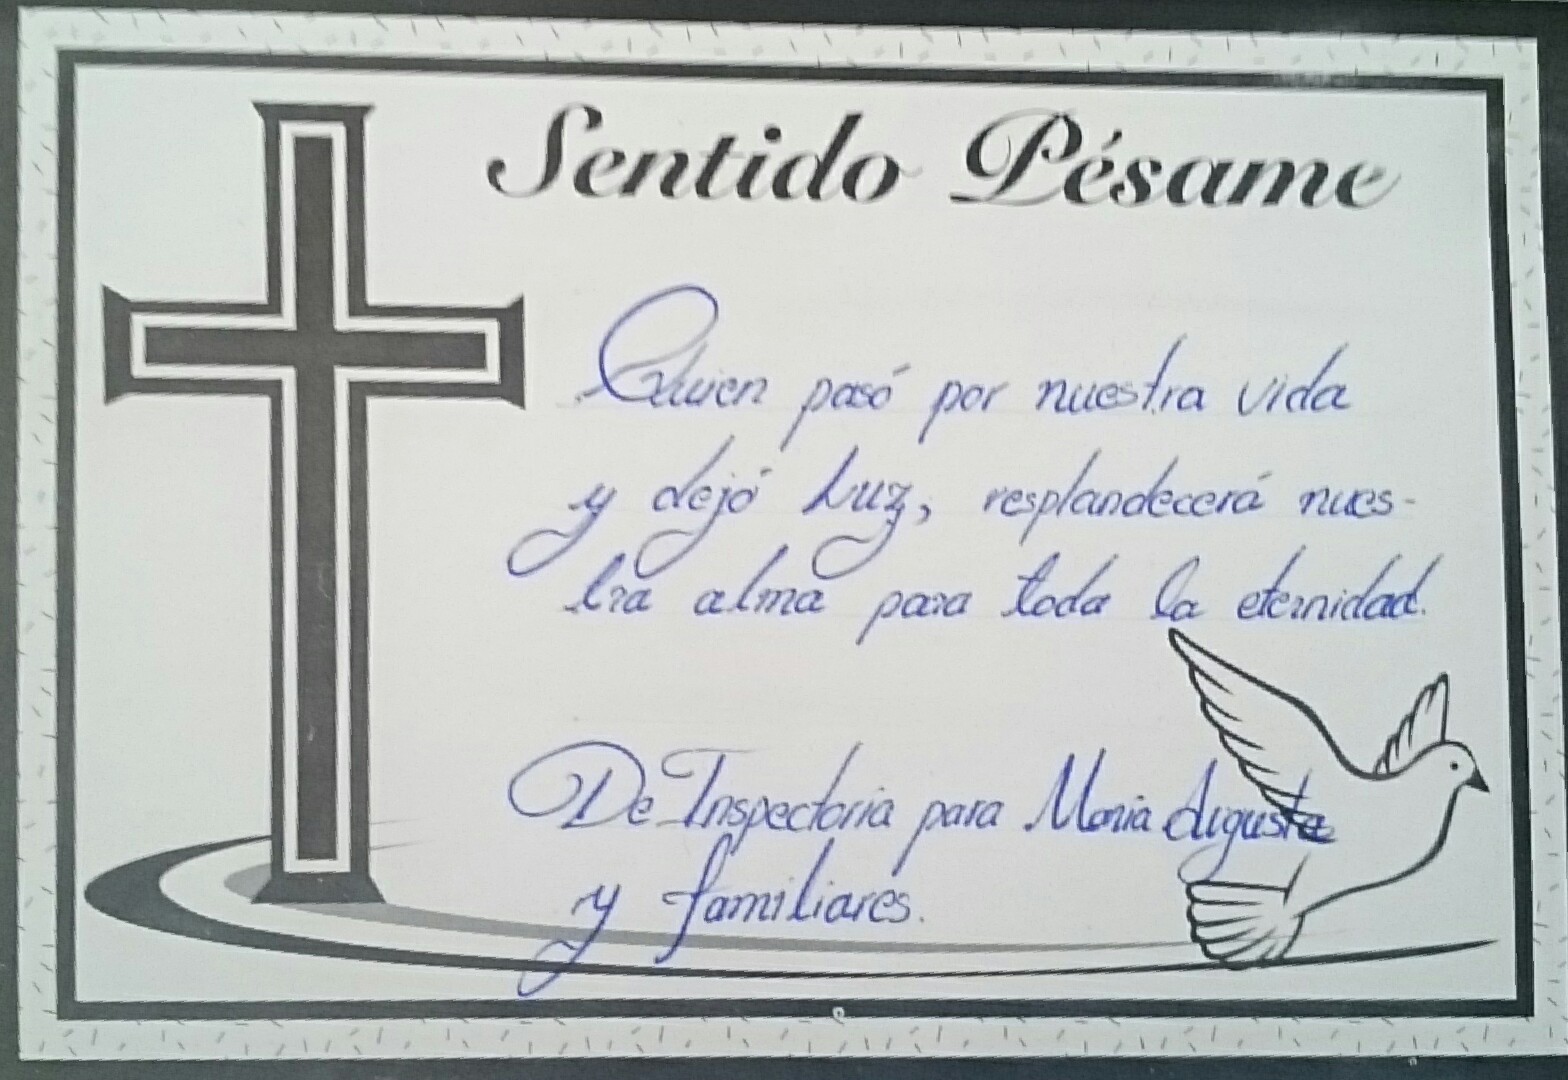 Sentido Pésame
Quien pasó por nuestra vida
y dejó luz, resplandecerá nues-
tra alma para toda la eternidad.
De Inspectoria para Maria Augusta
y familiares.